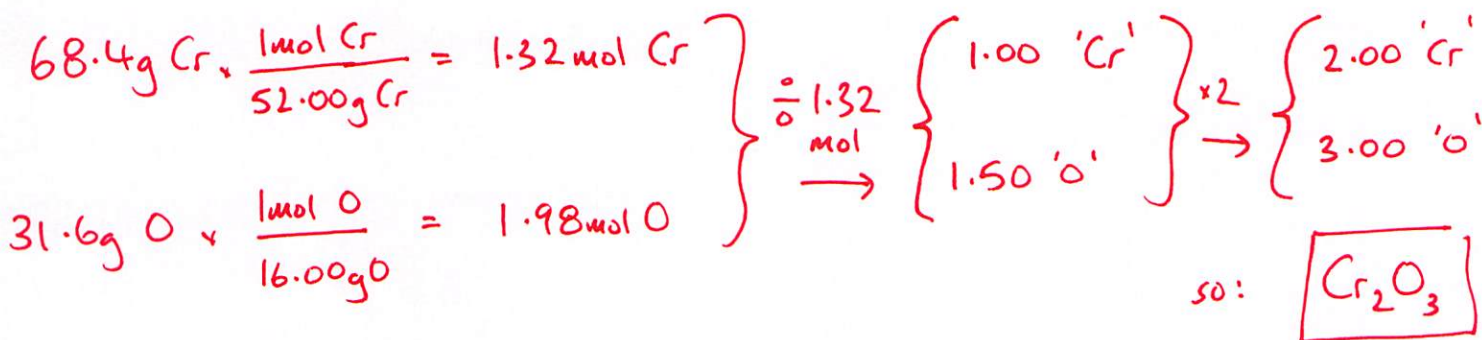 68.4g Cr × 1mol Cr / 52.00g Cr = 1.32 mol Cr
31.6g O × 1mol O / 16.00g O = 1.98 mol O
÷ 1.32 mol →
1.00 'Cr'
1.50 'O'
×2 →
2.00 'Cr'
3.00 'O'
so: Cr₂O₃